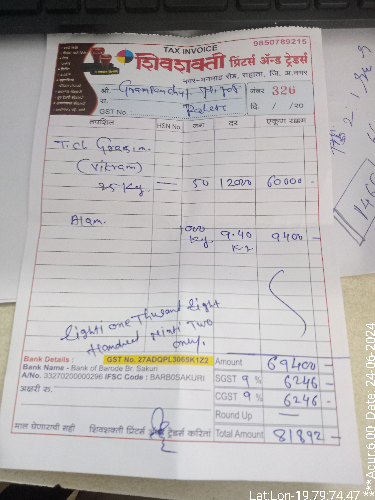 TAX INVOICE
9850789215
शिवशक्ती प्रिंटर्स ॲन्ड ट्रेडर्स
नगर-मनमाड रोड, राहाता, जि. अ.नगर
श्री. Grampanchyt
नंबर 326
रा.
GST No.
दि. / /20
तपशिल HSN No. नग दर एकूण रक्कम
(Vikram)
25 Kg. — 50 1200 60000 -
Alam. 1000 Kg. 9.40 9400 -
Eighti one Thusand Eight
Handred Ninti Two
only.
Bank Details : GST No. 27ADQPL3065K1Z2
Bank Name - Bank of Barode Br. Sakuri
A/No. 33270200000296 IFSC Code : BARB0SAKURI
अक्षरी रु.
Amount 69400 -
SGST 9 % 6246 -
CGST 9 % 6246 -
Round Up —
Total Amount 81892 -
माल घेणाराची सही शिवशक्ती प्रिंटर्स ॲन्ड ट्रेडर्स करिता
Lat:Lon-19.79:74.47
***Acur:6.00 Date: 24-06-2024